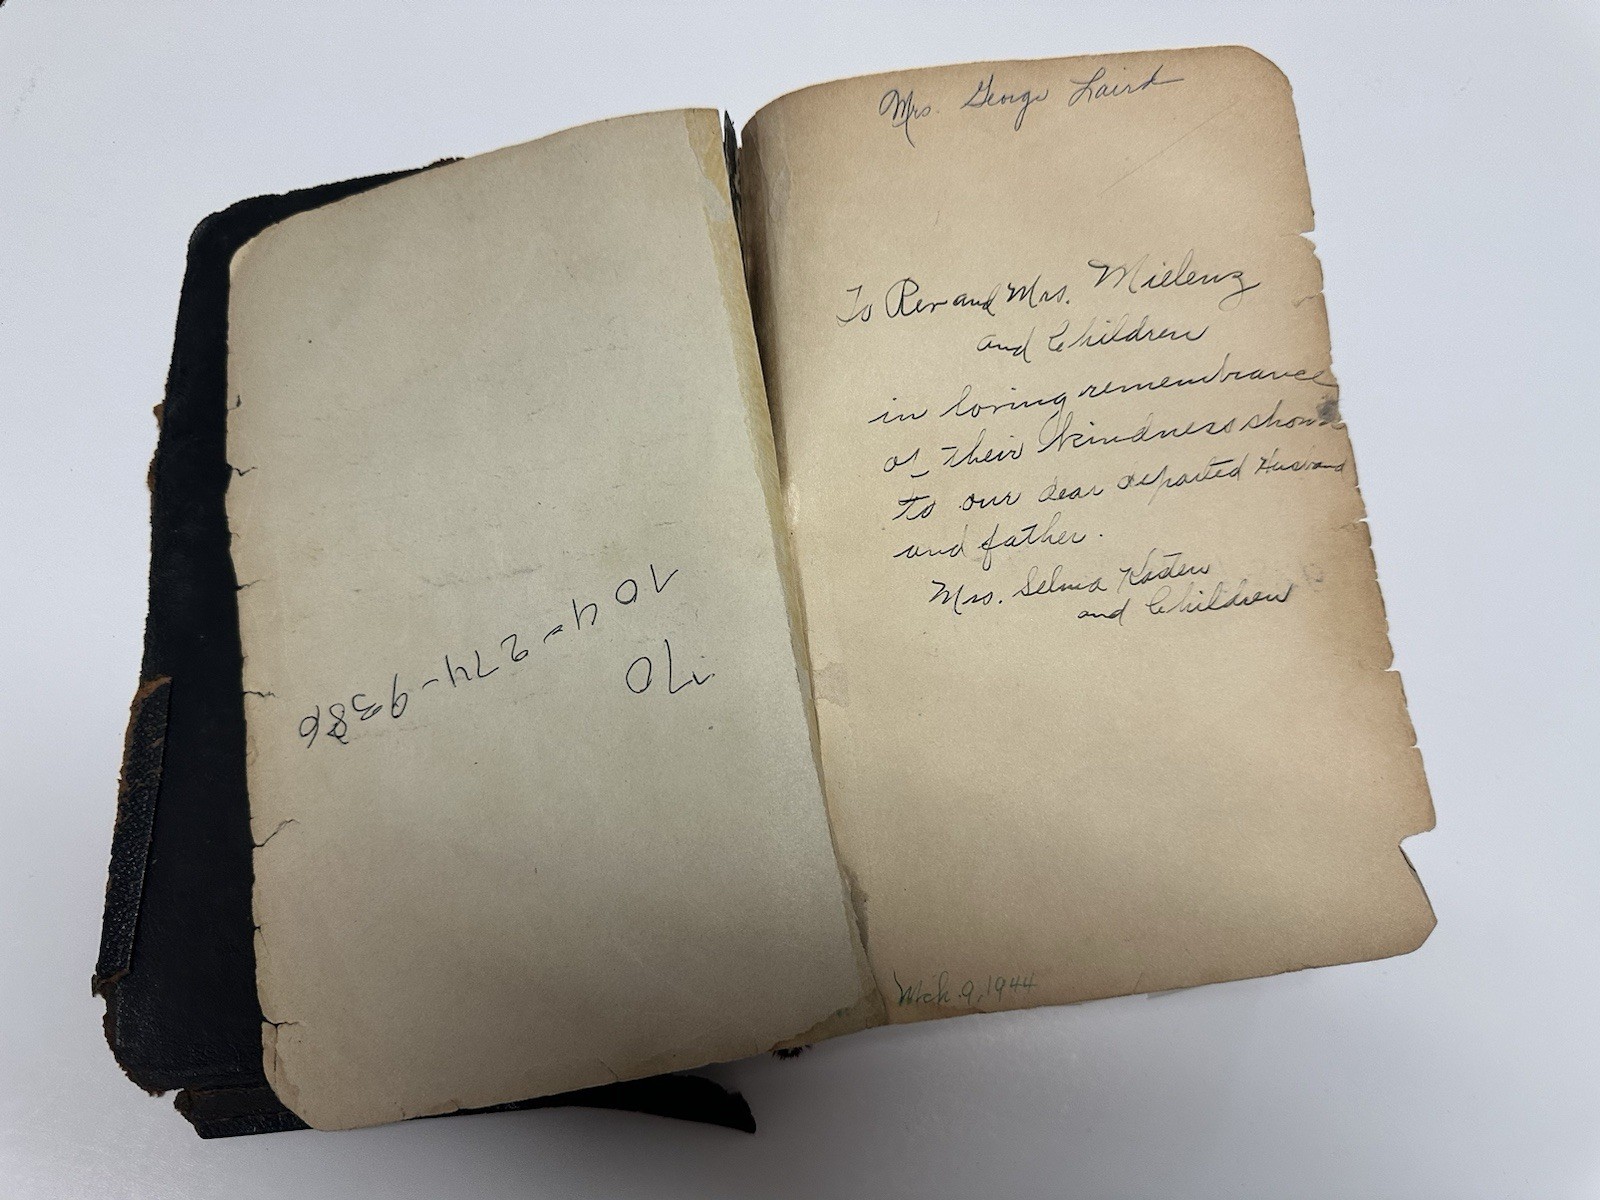 70
104-274-9386
Mrs. George Laird
To Rev and Mrs. Mielenz
and Children
in loving remembrance
of their kindness shown
to our dear departed Husband
and father.
Mrs. Selma Kasten
and Children
Mch. 9, 1944